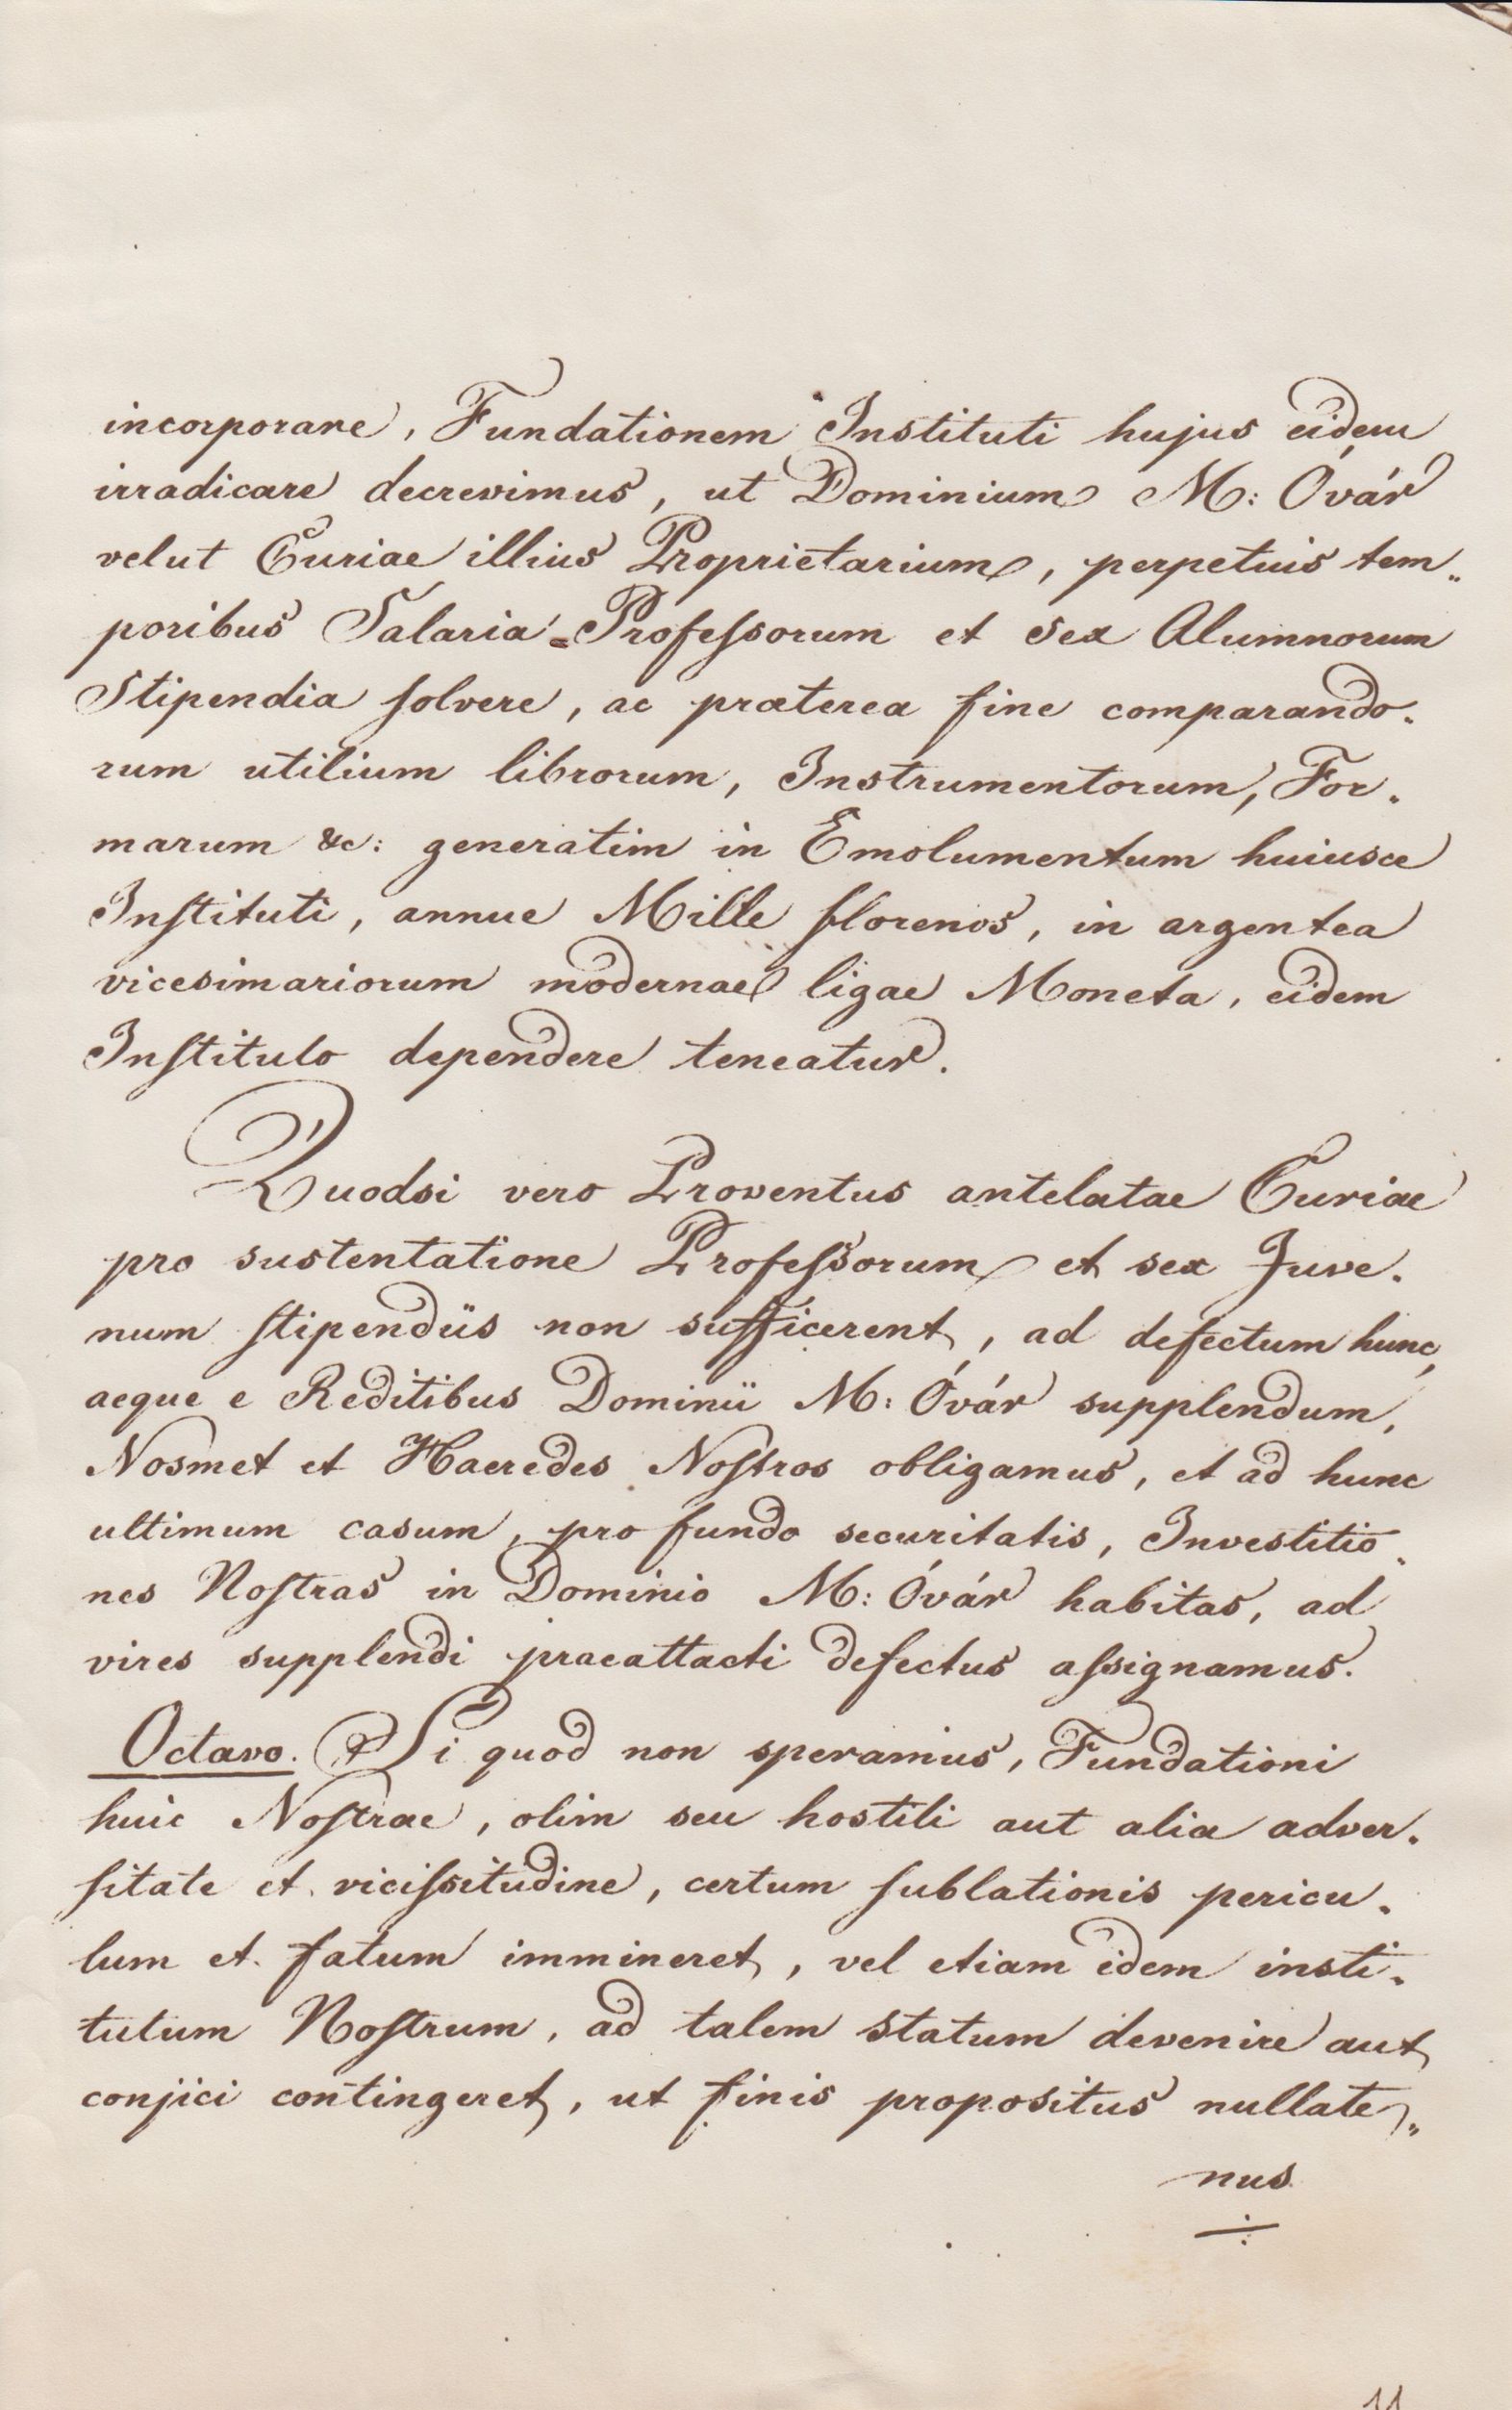 incorporare, Fundationem Instituti hujus eidem
irradicare decrevimus, ut Dominium M: Óvár
velut Curiae illius Proprietarium, perpetuis tem„
poribus Salaria Professorum et sex Alumnorum
Stipendia solvere, ac praeterea fine comparando„
rum utilium librorum, Instrumentorum, For„
marum &c: generatim in Emolumentum huiusce
Instituti, annue Mille florenos, in argentea
vicesimariorum modernae ligae Moneta, eidem
Instituto dependere teneatur.
Quodsi vero Proventus antelatae Curiae
pro sustentatione Professorum et sex Juve„
num stipendiis non sufficerent, ad defectum hunc,
aeque e Reditibus Dominii M: Óvár supplendum,
Nosmet et Haeredes Nostros obligamus, et ad hunc
ultimum casum, pro fundo securitatis, Investitio„
nes Nostras in Dominio M: Óvár habitas, ad
vires supplendi praeattacti defectus assignamus.
Octavo. Si quod non speramus, Fundationi
huic Nostrae, olim seu hostili aut alia adver„
sitate et vicissitudine, certum sublationis pericu„
lum et fatum immineret, vel etiam idem insti„
tutum Nostrum, ad talem statum devenire aut
conjici contingeret, ut finis propositus nullate„
nus
11